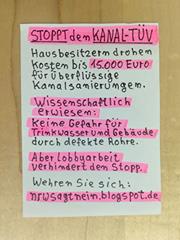 STOPPT den KANAL-TÜV
Hausbesitzern drohen
Kosten bis 15.000 Euro
für überflüssige
Kanalsanierungen.
Wissenschaftlich
erwiesen:
Keine Gefahr für
Trinkwasser und Gebäude
durch defekte Rohre.
Aber Lobbyarbeit
verhindert den Stopp.
Wehren Sie sich:
nrwsagtnein.blogspot.de